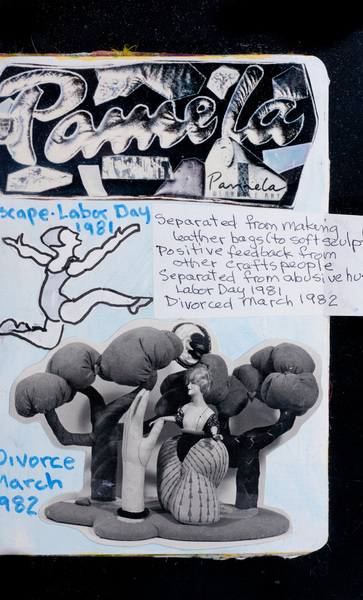 Pamela
Pamela
WEARABLE ART
scape·Labor Day
1981
Separated from making
leather bags(to softsculpt
Positive feedback from
other craftspeople
Separated from abusive hus
Labor Day 1981
Divorced March 1982
Divorce
March
982